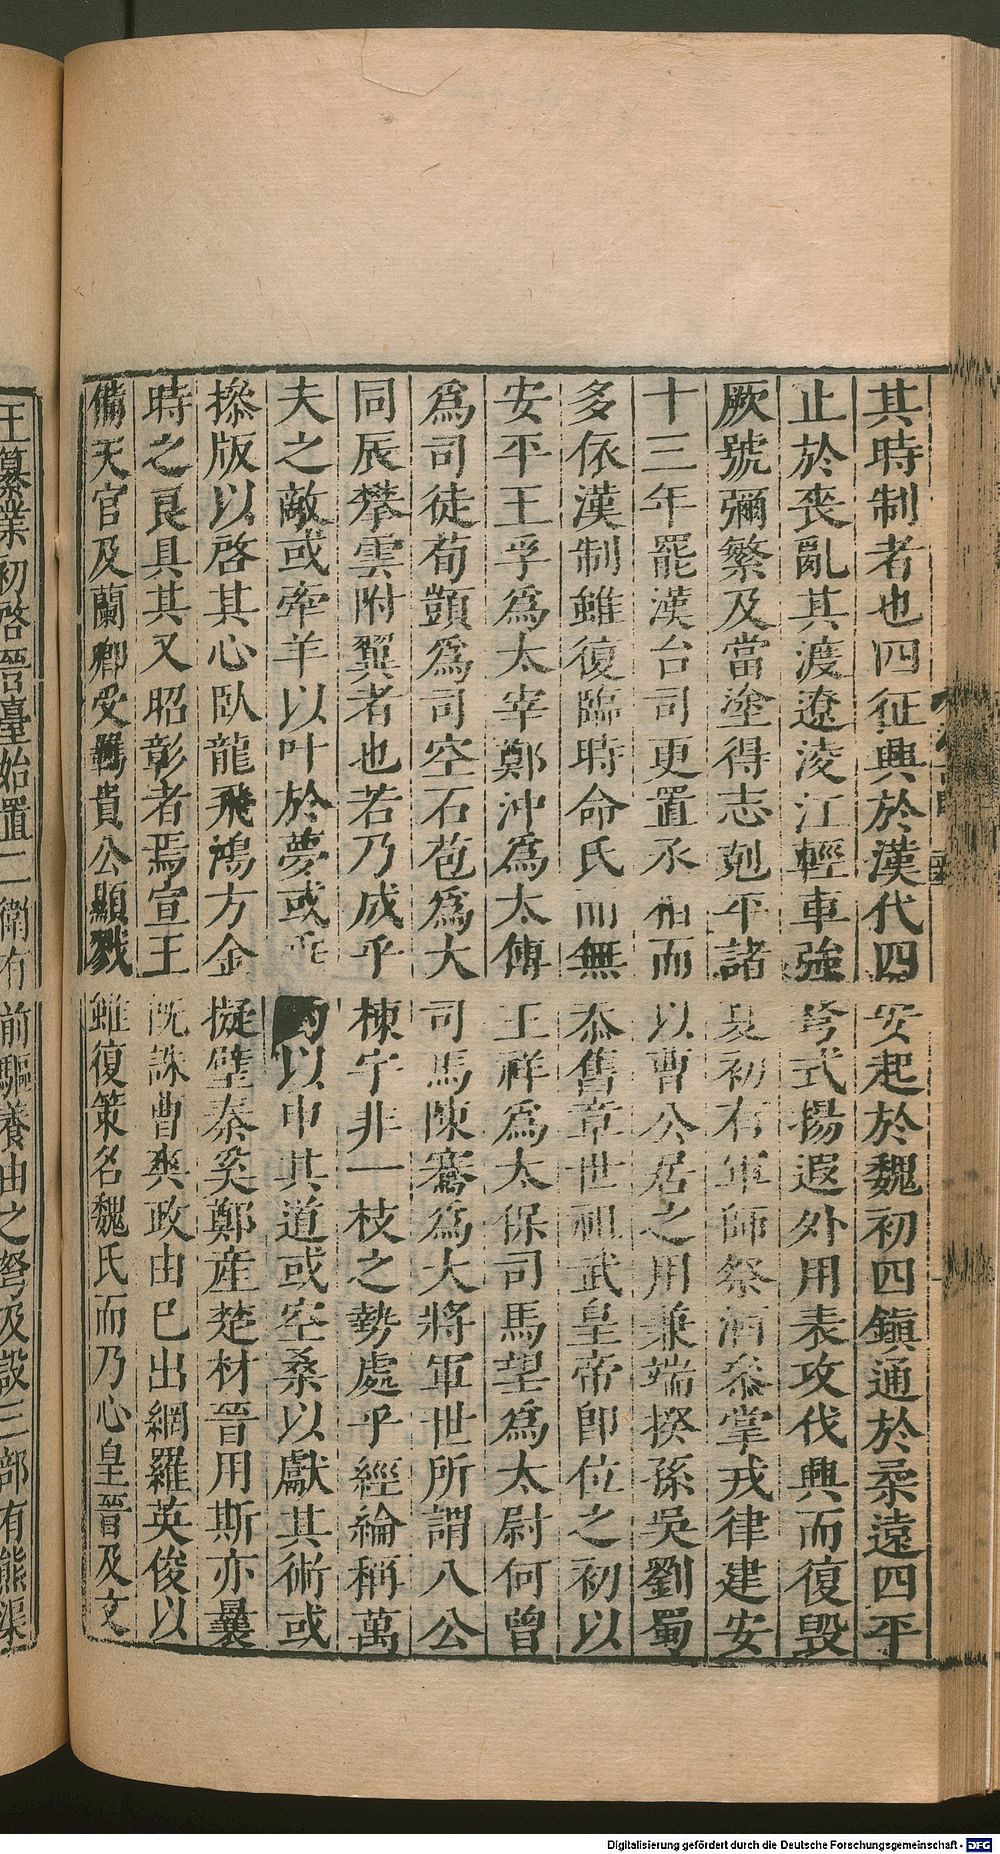 其時制者也四征興於漢代四安起於魏初四鎮通於柔遠四平
止於喪亂其渡遼淩江輕車強弩式揚遐外用表攻伐興而復毀
厥號彌繁及當塗得志剋平諸夏初有軍師祭酒叅掌戎律建安
十三年罷漢台司更置丞相而以曹公居之用兼端揆孫吳劉蜀
多依漢制雖復臨時命氏而無忝舊章世祖武皇帝即位之初以
安平王孚爲太宰鄭沖爲太傅王祥爲太保司馬望爲太尉何曾
爲司徒荀顗爲司空石苞爲大司馬陳騫爲大將軍世所謂八公
同辰攀雲附翼者也若乃成乎棟宇非一枝之勢處乎經綸稱萬
夫之敵或牽羊以叶於夢或以申其道或空桑以獻其術或
操版以啓其心臥龍飛鴻方金擬璧秦奚鄭産楚材晉用斯亦曩
時之良具其又昭彰者焉宣王旣誅曹爽政由已出網羅英俊以
備天官及蘭卿受羈貴公顯戮雖復策名魏氏而乃心皇晉及文
王纂業初啓晉臺始置二衛有前驅養由之弩及設三部有熊渠
Digitalisierung gefördert durch die Deutsche Forschungsgemeinschaft - DFG